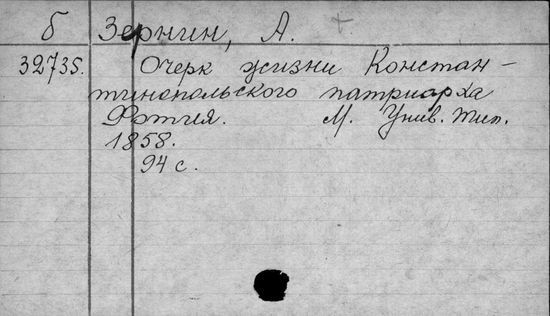 б Зернин, А. +
32735. Очерк жизни Констан-
тинопольского патриарха
Фотия. М. Унив. тип.
1858.
94 с.